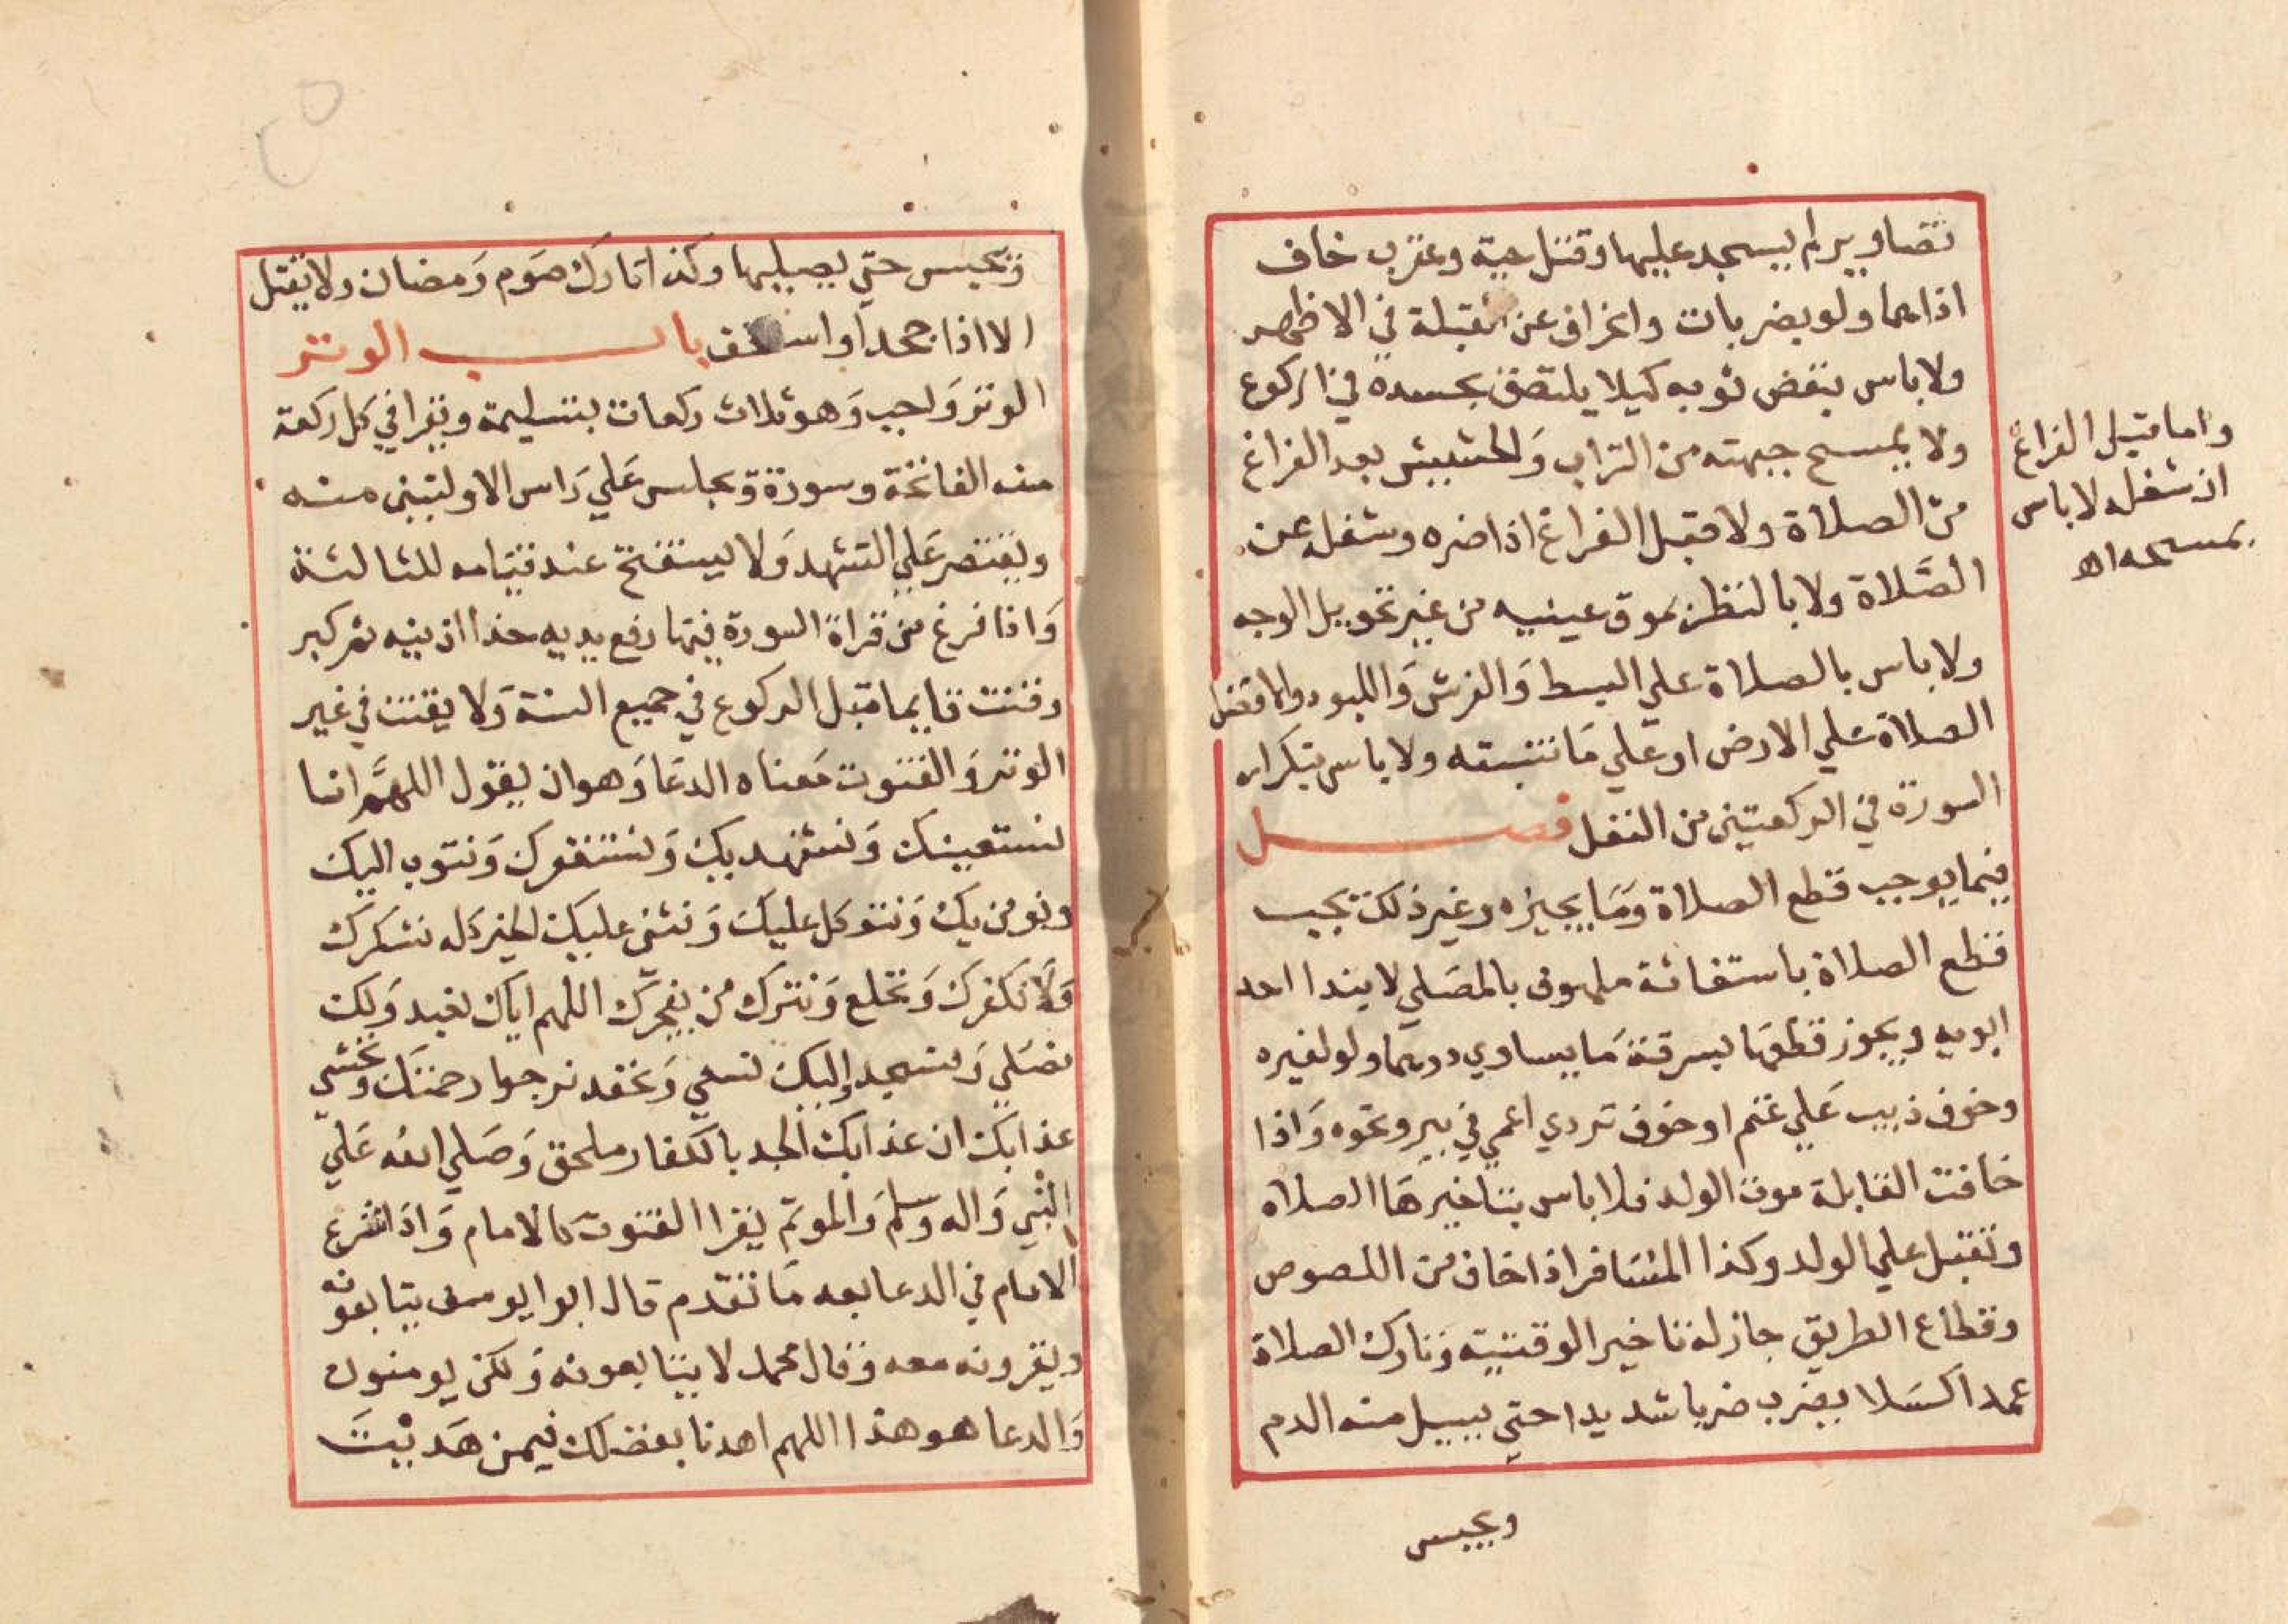 تصاوير لم يسجد عليها وقتل حية وعقرب خاف
اذاهما ولو بضربات وانحراف عن القبلة في الاظهر
ولا باس بنفض ثوبه كيلا يلتصق بجسده في الركوع
ولا بمسح جبهته من التراب وَالحشيش بعد الفراغ
من الصلاة ولا قبل الفراغ اذا ضره وشغله عن
الصَّلاة ولا بالنظر بموق عينيه من غير تحويل الوجه
ولا باس بالصلاة علي البسط وَالفرش وَاللبود والافضل
الصلاة علي الارض او علي مَا تنبته ولا باس بتكرار
السورة في الركعتين من النفل فصل
فيما يوجب قطع الصلاة وَمَا يجيزه وغير ذلك يجب
قطع الصلاة باستغاثة ملهوف بالمصَلي لا بندا احد
ابويه ويجوز قطعهَا بسرقة مَا يساوي درهما ولو لغيره
وخوف ذيب عَلي غنم او خوف تردي اعمي في بير ونحوه وَاذا
خافت القابلة موت الولد فلا باس بتاخيرهَا الصلاة
وتقبل علي الولد وكذا المسَافر اذا خاف من اللصوص
وقطاع الطريق جاز له تاخير الوقتية وَتارك الصلاة
عمدا كسَلا يضرب ضربا شديدا حتي يسيل منه الدم
ويحبس
واما قبل الفراغ
ان شغله لا باس
بمسحه اه
وَيحبس حتي يصليها وكذا تارك صَوم رَمضان ولا يقتل
الا اذا جحد او استخف باب الوتر
الوتر وَاجب وَهو ثلاث ركعات بتسليمة ويقرا في كل ركعة
منه الفاتحة وسورة ويجلس عَلي رَاس الاوليين منه
ويقتصر عَلي التشهد وَلا يستفتح عند قيامه للثالثة
وَاذا فرغ من قراة السورة فيها رفع يديه حذا اذنيه ثم كبر
وقنت قايما قبل الركوع في جميع السنة وَلا يقنت في غير
الوتر وَالقنوت مَعناه الدعَا وَهو ان يقول اللهمَّ انا
نستعينك وَنستهديك وَنستغفرك وَنتوب اليك
ونومن بك وَنتوكل عليك وَنثني عليك الخير كله نشكرك
وَلَا نكفرك وَنخلع وَنترك من يفجرك اللهم اياك نعبد وَلك
نصَلي وَنسجد وإليك نسعي وَنحفد نرجوا رحمتَك ونخشي
عذابك ان عذابك الجد بالكفار ملحق وَصَلي الله عَلي
النْبي وَاله وسلم وَالموتم يقرا القنوت كالامام وَاذا شرع
الامام في الدعا بعد مَا تقدم قال ابوا يوسف يتابعونه
ويقرونه معه وَقال محمد لا يتابعونه وَلكن يومنون
وَالدعا هو هذا اللهم اهدنا بفضلك فيمن هَديْتَ